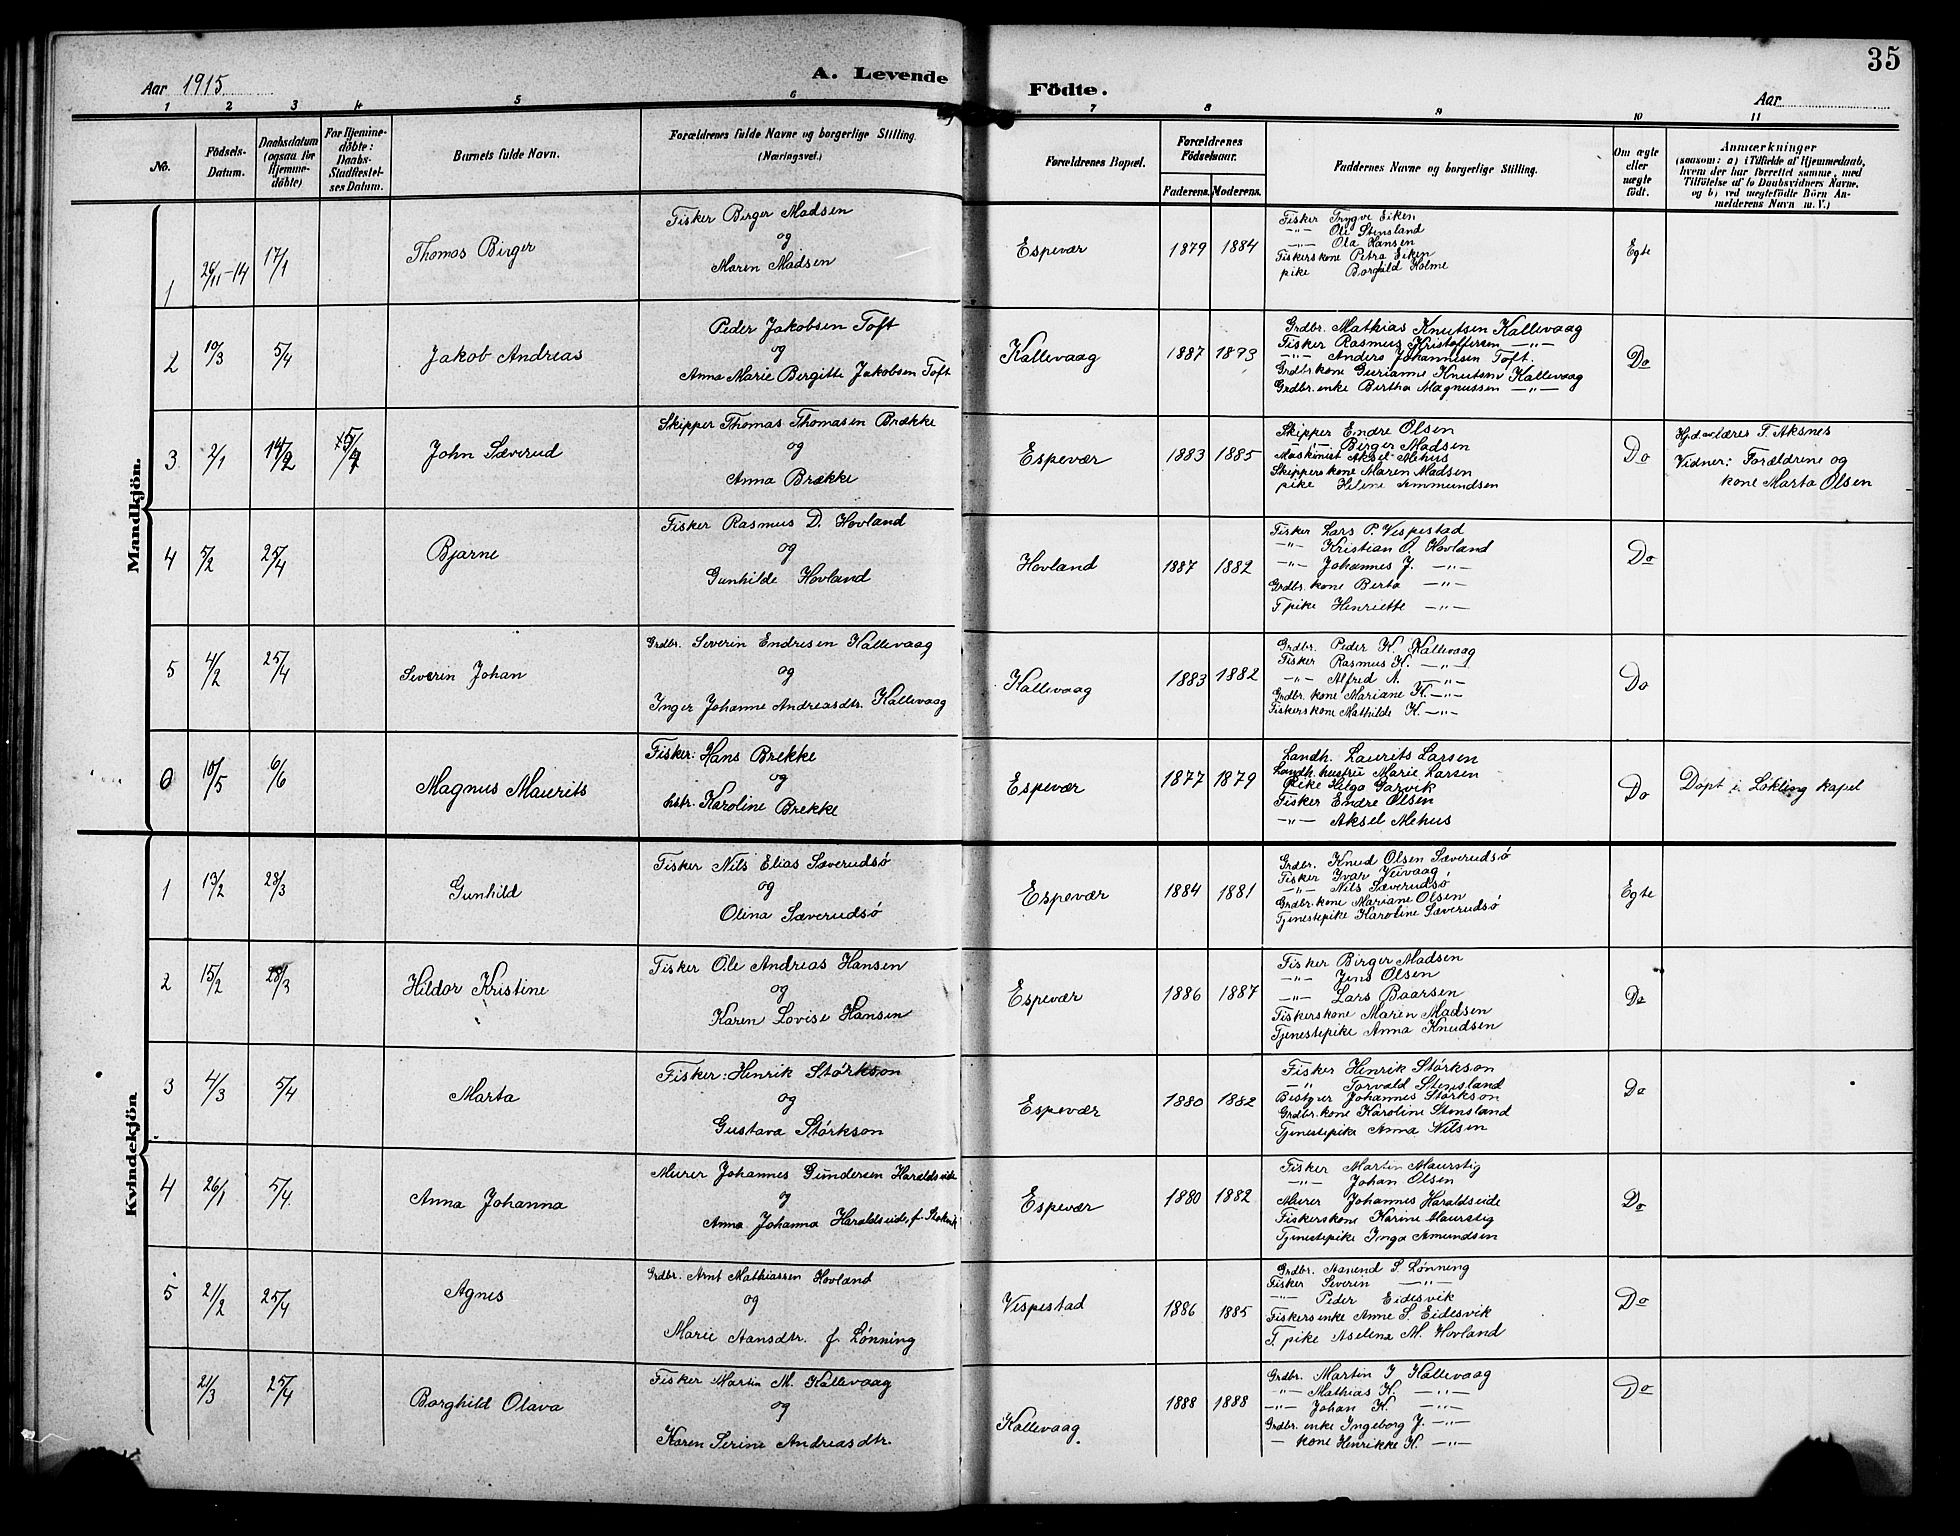 35
Aar 1915
A. Levende
Födte.
Aar
1 2 3 4 5 6 7 8 9 10 11
No.
Födsels-
Datum.
Daabsdatum
(ogsaa for
Hjemme-
döbte)
For Hjemme-
döbte:
Daabs-
Stadfæstel-
ses Datum.
Barnets fulde Navn.
Forældrenes fulde Navne og borgerlige Stilling.
(Næringsvei.)
Forældrenes Bopæl.
Forældrenes
Födselsaar.
Faderens. Moderens.
Faddernes Navne og borgerlige Stilling.
Om ægte
eller
uægte
födt.
Anmærkninger
(saasom: a) i Tilfælde af Hjemmedaab,
hvem der har forrettet samme, med
Tilföielse af to Daabsvidners Navne,
og b) ved uægtefödte Börn An-
melderens Navn m. V.)
Mandkjön.
1
26/11-14
17/1
Thomas Birger
Fisker Birger Madsen
og
Maren Madsen
Espevær
1879 1884
Fisker Trygve Eiken
-"- Ole Stensland
-"- Ola Hansen
Fiskerskone Petra Eiken
pike Borghild Holme
Egte
2
10/3
5/4
Jakob Andreas
Peder Jakobsen Toft
og
Anna Marie Bergitte Jakobsen Toft
Kallevaag
1887 1893
Grdbr. Mathias Knutsen Kallevaag
Fisker Rasmus Kristoffersen -"-
-"- Anders Johannesen Toft.
Grdbr kone Gurianne Knutsen Kallevaag
Grdbr. enke Bertha Magnussen -"-
Do
3
2/1
14/2
John Sæverud
Skipper Thomas Thomasen Brække
og
Anna Brække
Espevær
1883 1885
Skipper Endre Olsen
-"- Birger Madsen
Maskinist Aksel Mehus
Skipperskone Maren Madsen
pike Helene Ammundsen
Do
Hjd. av lærer T. Aksnes
Vidner: Forældrene og
kone Marta Olsen
4
5/2
25/4
Bjarne
Fisker Rasmus D. Hovland
og
Gunhilde Hovland
Hovland
1887 1882
Fisker Lars P. Vespestad
-"- Kristian O. Hovland
-"- Johannes J. -"-
Grdbr. kone Berta -"-
T pike Henriette -"-
Do
5
4/2
25/4
Severin Johan
Grdbr. Severin Endresen Kallevaag
og
Inger Johanne Andreasdtr. Kallevaag
Kallevaag
1883 1882
Grdbr. Peder K. Kallevaag
Fisker Rasmus K. -"-
-"- Alfred A. -"-
Grdbr. kone Mariane K. -"-
Fiskerskone Mathilde K. -"-
Do
6
10/5
6/6
Magnus Maurits
Fisker: Hans Brekke
og
hstr. Karoline Brekke
Espevær
1877 1879
Landh. Laurits Larsen
Landh. hustru Marie Larsen
Pike Helga Garvik
Fisker Endre Olsen
-"- Aksel Mehus
Do
Døpt i Lökling kapel
Kvindekjön
1
13/2
28/3
Gunhild
Fisker Nils Elias Sæverudsø
og
Olina Sæverudsø
Espevær
1884 1881
Grdbr. Knud Olsen Sæverudsø
Fisker Ivar Veivaag
-"- Nils Sæverudsø
Grdbr. kone Mariane Olsen
Tjenestepike Karoline Sæverudsø
Egte
2
15/2
28/3
Hildor Kristine
Fisker Ole Andreas Hansen
og
Karen Lovise Hansen
Espevær
1886 1887
Fisker Birger Madsen
-"- Jens Olsen
-"- Lars Baarsen
Fiskerskone Maren Madsen
Tjenestepike Anna Knudsen
Do
3
4/3
5/4
Marta
Fisker: Henrik Størkson
og
Gustava Størkson
Espevær
1880 1882
Fisker Henrik Størkson
-"- Torvald Stensland
Johannes Størkson
Grdbr. kone Karoline Stensland
Tjenestepike Anna Nilsen
Do
4
26/1
5/4.
Anna Johanna
Murer Johannes Gundersen Haraldseide
og
Anna Johanna Haraldseide, f.
Espevær
1880 1882
Fisker Martin Maurstig
-"- Johan Olsen
Murer Johannes Haraldseide
Fiskerskone Karine Maurstig
Tjenestepike Inga Amundsen
Do
5
21/2
25/4
Agnes
Grdbr. Arnt Mathiassen Hovland
og
Marie Aansdtr. f. Lønning
Vespestad
1886 1885
Grdbr. Aanend S. Lønning
Fisker Severin -"-
-"- Peder Eidesvik
Fiskersenke Anne S. Eidesvik
T. pike Aselena M. Hovland
Do
21/3
25/4
Borghild Olava
Fisker Martin M. Kallevaag
og
Karen Serine Andreasdtr.
Kallevaag
1888 1888
Grdbr. Martin J Kallevaag
-"- Mathias K. -"-
-"- Johan K. -"-
Grdbr. enke Ingeborg J. -"-
- kone Henrikke K. -"-
Do